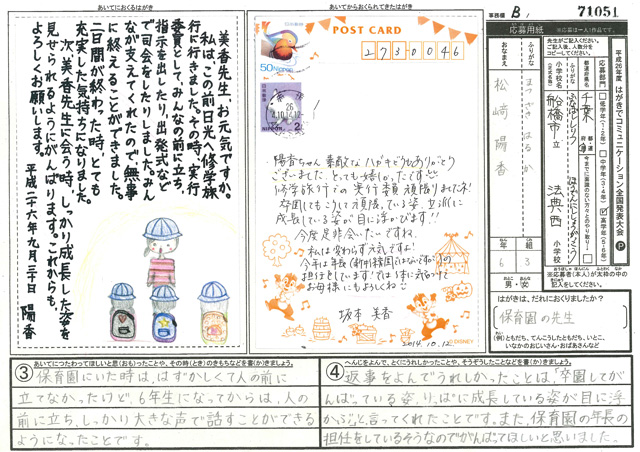 あいてにおくるはがき
美香先生、お元気ですか。
私は、この前日光へ修学旅
行に行きました。その時、実行
委員として、みんなの前に立ち、
指示を出したり、出発式など
で司会をしたりしました。みん
なが支えてくれたので、無事
に終えることができました。
二日間が終わった時、とても
充実した気持ちになりました。
次、美香先生に会う時、しっかり成長した姿を
見せられるようにがんばります。これからも、
よろしくお願いします。
平成二十六年九月三十日 陽香
あいてからおくられてきたはがき
POST CARD
50 NIPPON
2730046
NIPPON 2
陽香ちゃん 素敵なハガキどうもありがとう
ございました。とても嬉しかったです
修学旅行での実行委員 頑張りましたネ!
卒園してもこうして頑張っている姿、立派に
成長している姿が目に浮かびます!!
今度是非会いたいですね。
私は変わらず元気ですよ!
担任をしています!
お母様にもよろしくね
坂本 美香
2014.10.12
©DISNEY
事務様 B
71051
応募用紙
※応募は一人1作品です。
平成26年度 はがきでコミュニケーション全国発表大会
応募部門
低学年(1・2年)
中学年(3・4年)
高学年(5・6年)
都道府県名
千葉
小学校名
船橋市立
法典西
小学校
ふりがな
まつざき はるか
おなまえ
松﨑 陽香
年 組
6 3
男・女
※応募者(本人)が太枠の中の
はがきは、だれにおくりましたか?
保育園の先生
(例)ともだち、てんこうしたともだち、いとこ、
いなかのおじいさん・おばあさんなど
③ あいてにつたわってほしいと思(おも)ったことや、その時(とき)のきもちなどを書(か)きましょう。
保育園にいた時は、はずかしくて人の前に
立てなかったけど、6年生になってからは、人の
前に立ち、しっかり大きな声で話すことができる
ようになったことです。
④ へんじをよんで、とくにうれしかったことや、そうぞうしたことなどを書(か)きましょう。
返事をよんでうれしかったことは、「卒園してが
んばっている姿、りっぱに成長している姿が目に浮
かぶ」と言ってくれたことです。また、保育園の年長の
担任をしているそうなのでがんばってほしいと思いました。